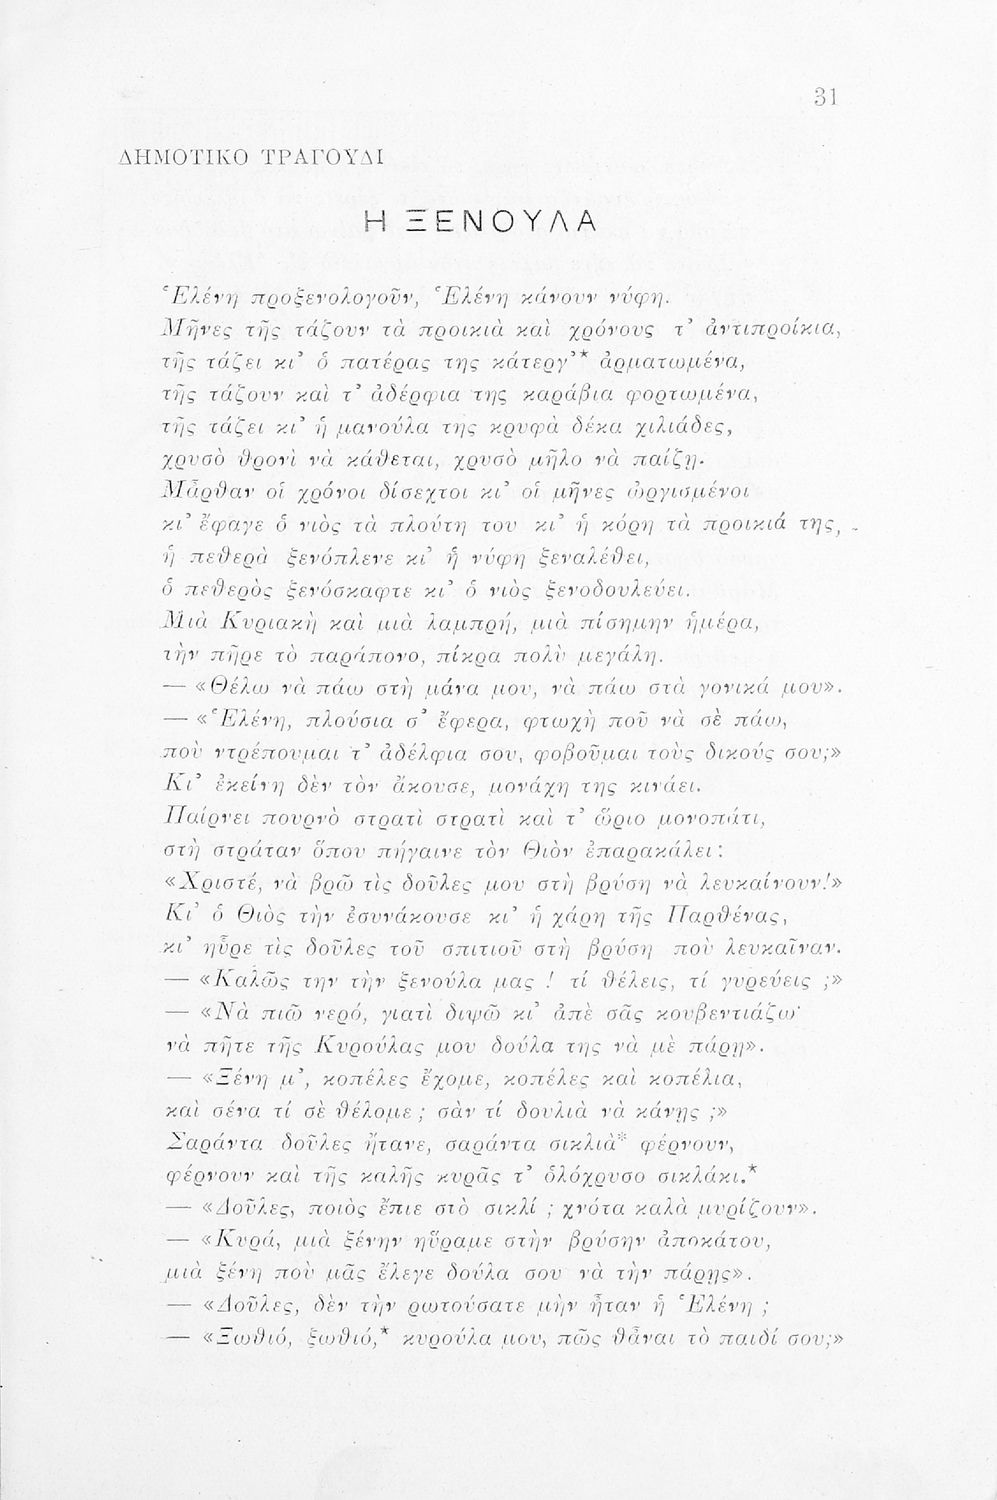 31
ΔΗΜΟΤΙΚΟ ΤΡΑΓΟΥΔΙ
Η ΞΕΝΟΥΛΑ
Ἑλένη προξενολογοῦν, Ἑλένη κάνουν νύφη.
Μῆνες τῆς τάζουν τὰ προικιὰ καὶ χρόνους τ’ ἀντιπροίκια,
τῆς τάζει κι’ ὁ πατέρας της κάτεργ’* ἀρματωμένα,
τῆς τάζουν καὶ τ’ ἀδέρφια της καράβια φορτωμένα,
τῆς τάζει κι’ ἡ μανούλα της κρυφὰ δέκα χιλιάδες,
χρυσὸ θρονὶ νὰ κάθεται, χρυσὸ μῆλο νὰ παίζῃ.
Μᾶρθαν οἱ χρόνοι δίσεχτοι κι’ οἱ μῆνες ὠργισμένοι
κι’ ἔφαγε ὁ νιὸς τὰ πλούτη του κι’ ἡ κόρη τὰ προικιά της,
ἡ πεθερὰ ξενόπλενε κι’ ἡ νύφη ξεναλέθει,
ὁ πεθερὸς ξενόσκαφτε κι’ ὁ νιὸς ξενοδουλεύει.
Μιὰ Κυριακὴ καὶ μιὰ λαμπρή, μιὰ πίσημην ἡμέρα,
τὴν πῆρε τὸ παράπονο, πίκρα πολὺ μεγάλη.
— «Θέλω νὰ πάω στὴ μάνα μου, νὰ πάω στὰ γονικά μου».
— «Ἑλένη, πλούσια σ’ ἔφερα, φτωχὴ ποῦ νὰ σὲ πάω,
ποὺ ντρέπουμαι τ’ ἀδέλφια σου, φοβοῦμαι τοὺς δικούς σου;»
Κι’ ἐκείνη δὲν τὸν ἄκουσε, μονάχη της κινάει.
Παίρνει πουρνὸ στρατὶ στρατὶ καὶ τ’ ὥριο μονοπάτι,
στὴ στράταν ὅπου πήγαινε τὸν Θιὸν ἐπαρακάλει:
«Χριστέ, νὰ βρῶ τὶς δοῦλες μου στὴ βρύση νὰ λευκαίνουν!»
Κι’ ὁ Θιὸς τὴν ἐσυνάκουσε κι’ ἡ χάρη τῆς Παρθένας,
κι’ ηὗρε τὶς δοῦλες τοῦ σπιτιοῦ στὴ βρύση ποὺ λευκαῖναν.
— «Καλῶς την τὴν ξενούλα μας ! τί θέλεις, τί γυρεύεις ;»
— «Νὰ πιῶ νερό, γιατὶ διψῶ κι’ ἀπὲ σᾶς κουβεντιάζω·
νὰ πῆτε τῆς Κυρούλας μου δούλα της νὰ μὲ πάρῃ».
— «Ξένη μ’, κοπέλες ἔχομε, κοπέλες καὶ κοπέλια,
καὶ σένα τί σὲ θέλομε ; σὰν τί δουλιὰ νὰ κάνῃς ;»
Σαράντα δοῦλες ἤτανε, σαράντα σικλιὰ* φέρνουν,
φέρνουν καὶ τῆς καλῆς κυρᾶς τ’ ὁλόχρυσο σικλάκι.*
— «Δοῦλες, ποιὸς ἔπιε στὸ σικλί ; χνότα καλὰ μυρίζουν».
— «Κυρά, μιὰ ξένην ηὕραμε στὴν βρύσην ἀποκάτου,
μιὰ ξένη ποὺ μᾶς ἔλεγε δούλα σου νὰ τὴν πάρῃς».
— «Δοῦλες, δὲν τὴν ρωτούσατε μὴν ἦταν ἡ Ἑλένη ;
— «Ξωθιό, ξωθιό,* κυρούλα μου, πῶς θἆναι τὸ παιδί σου;»